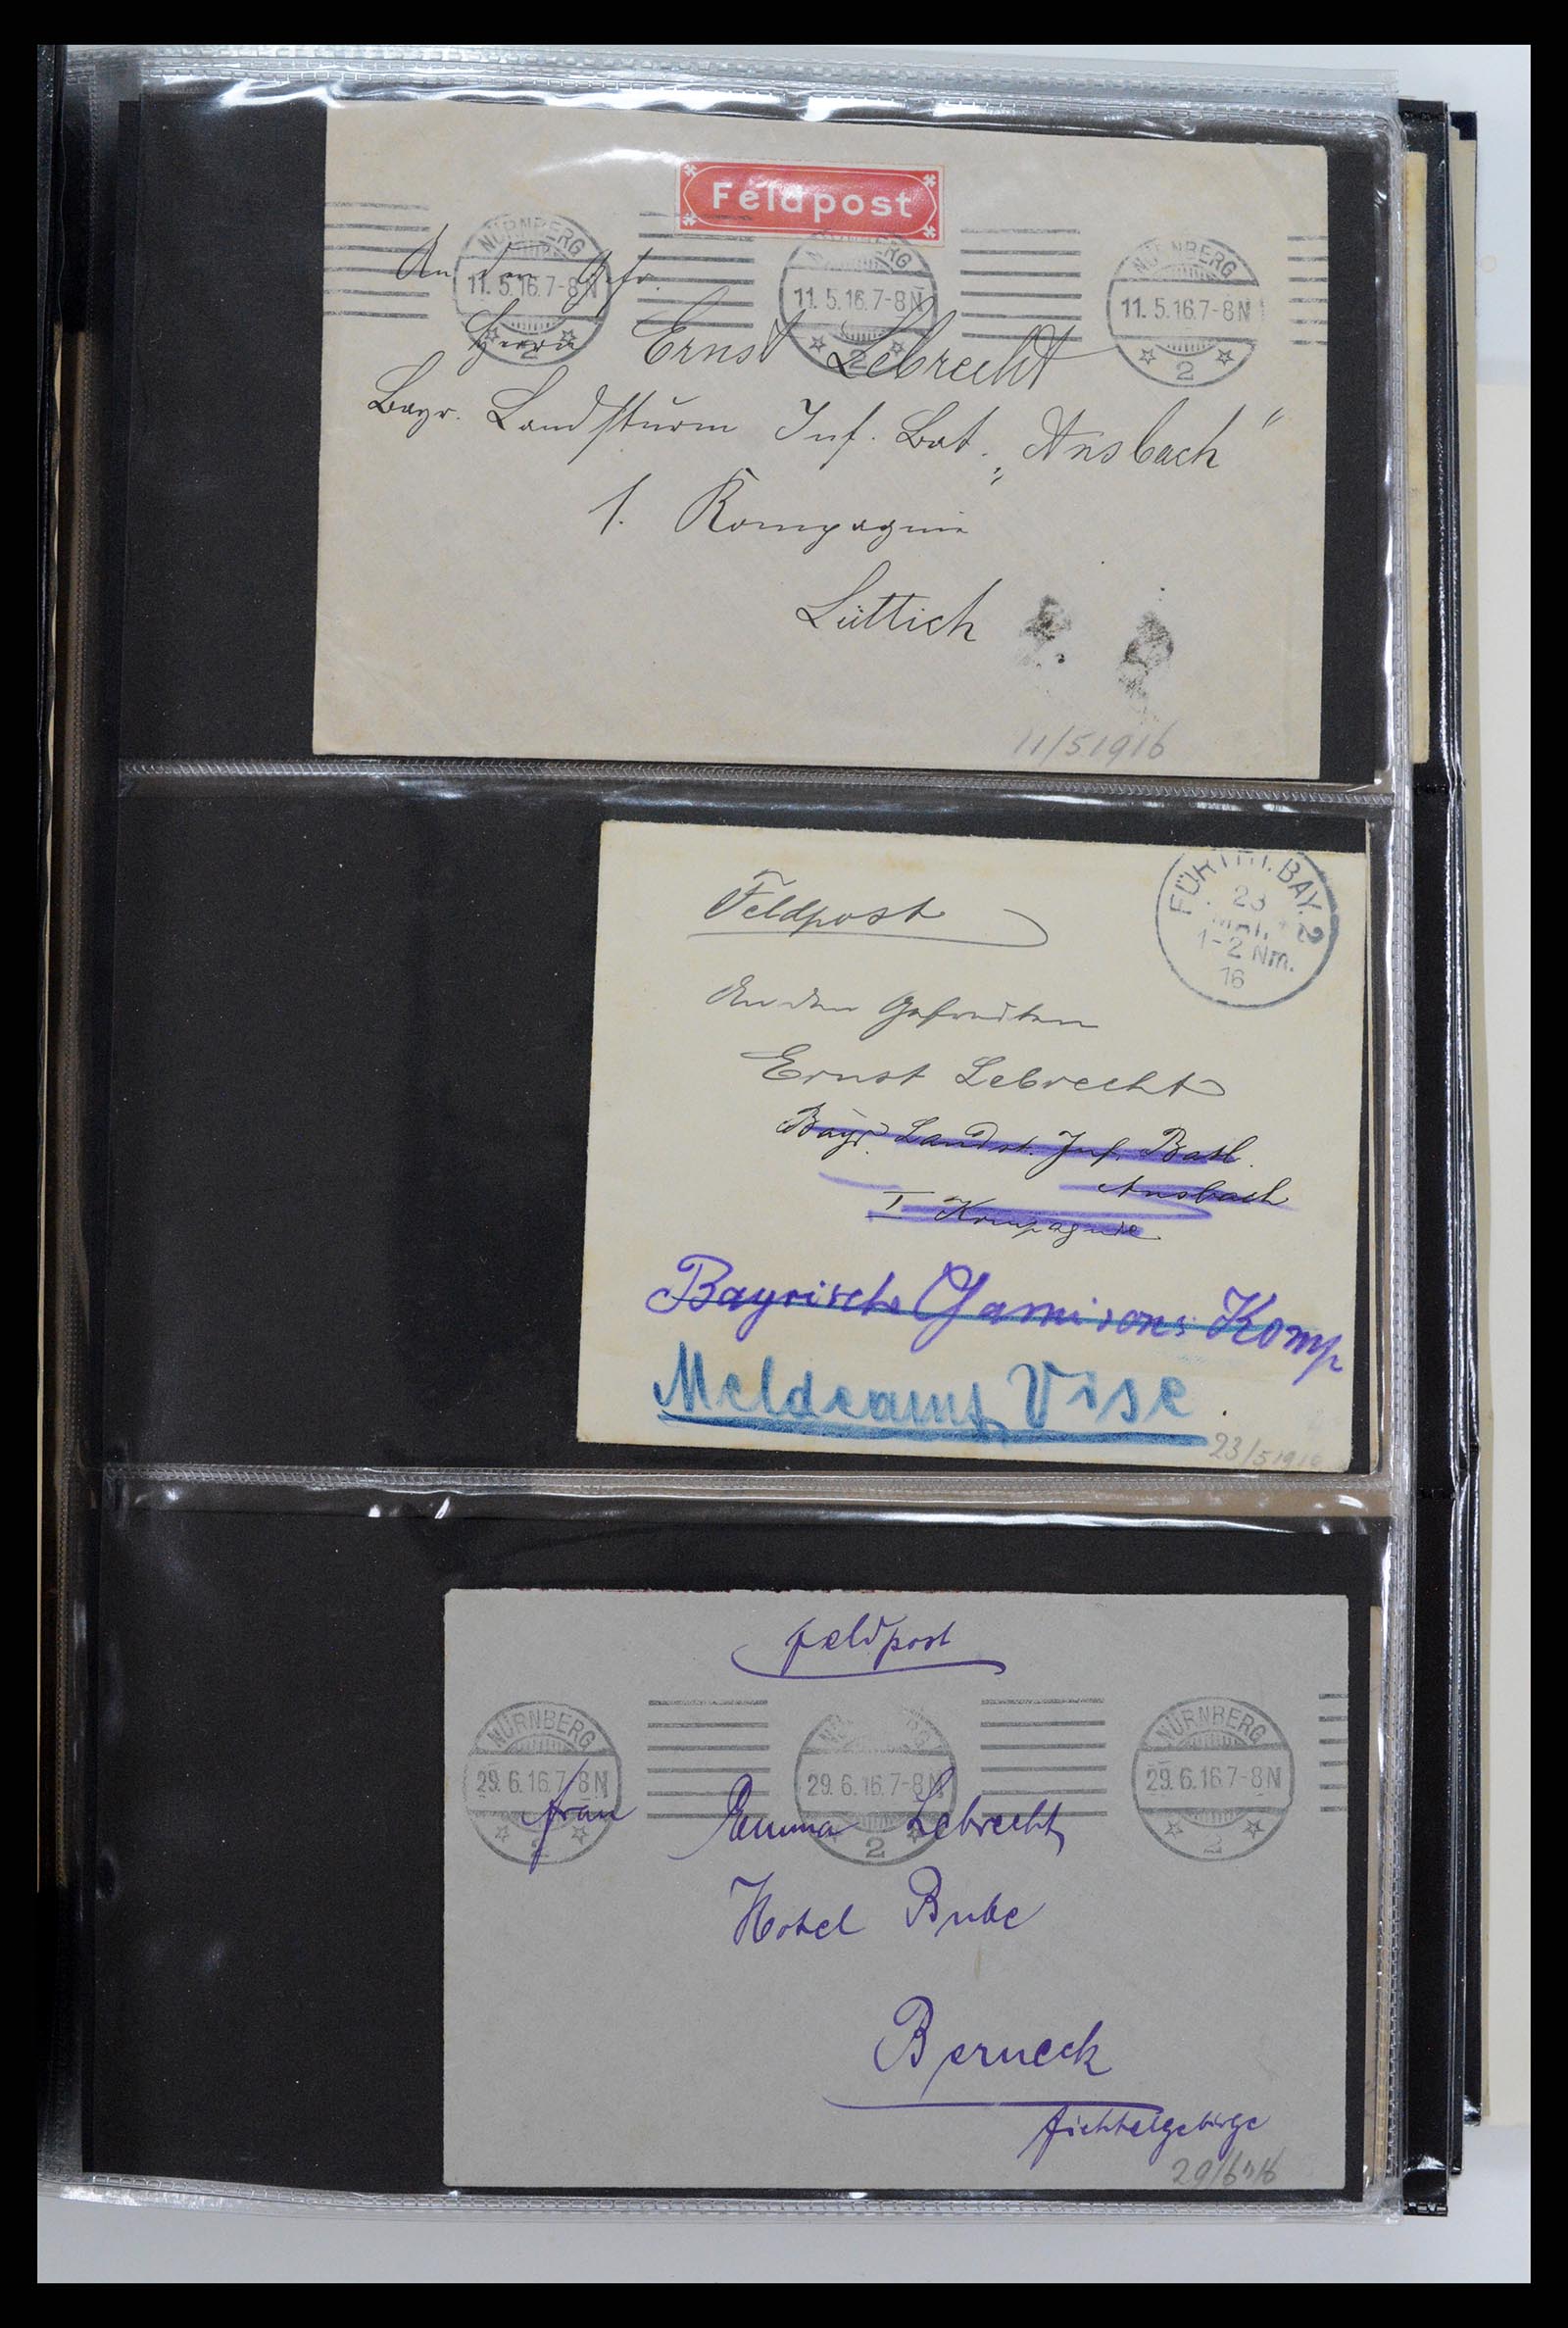 Feldpost
NÜRNBERG
11.5.16.7-8N
2
NÜRNBERG
11.5.16.7-8N
2
NÜRNBERG
11.5.16.7-8N
2
An den Gefr.
Herrn Ernst Lebrecht
Bayr. Landsturm Inf. Bat. „Ansbach“
1. Kompagnie
Lüttich
11/51916
Feldpost
FÜRTH I. BAY. 2
23
MAI.
1-2 Nm.
16
An den Gefreiten
Ernst Lebrecht
Bayr. Landst. Inf. Batl.
Ansbach
I Kompagnie
Bayrische Garnisons Komp
Meldeamt Vise
23/5191
Feldpost
NÜRNBERG
29.6.16.7-8N
2
NÜRNBERG
29.6.16.7-8N
2
NÜRNBERG
29.6.16.7-8N
2
Frau Emma Lebrecht
Hotel Bube
Berneck
Fichtelgebirge
29/6 16